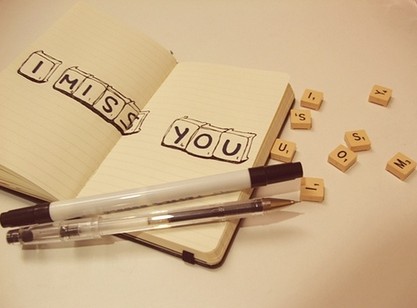 I MISS
YOU
I
Y
S
S
U
O
M
I